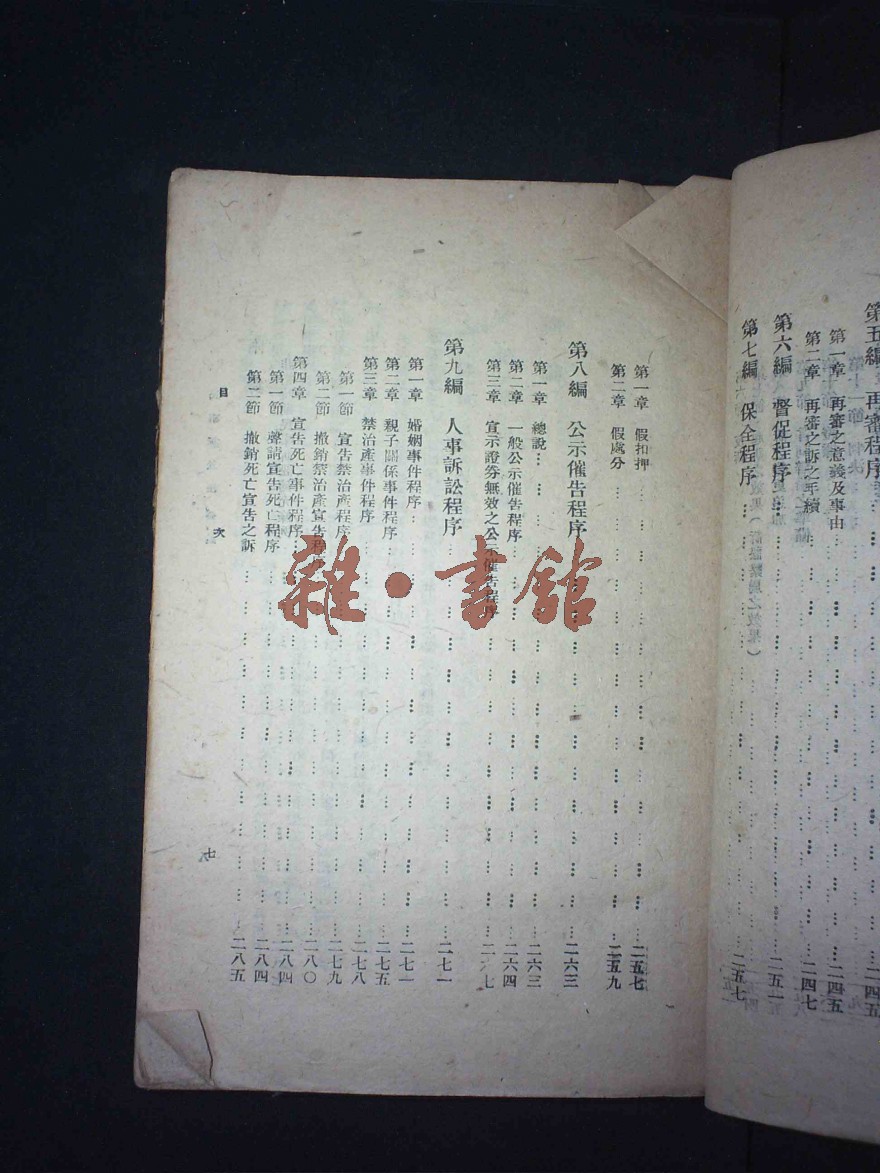 第五編 再審程序 二四五
第一章 再審之意義及事由 二四五
第二章 再審之訴之手續 二四七
第六編 督促程序 二五一
第七編 保全程序 二五七
第一章 假扣押 二五七
第二章 假處分 二五九
第八編 公示催告程序 二六三
第一章 總說 二六三
第二章 一般公示催告程序 二六四
第三章 宣示證券無效之公示催告程序
第九編 人事訴訟程序 二七一
第一章 婚姻事件程序 二七一
第二章 親子關係事件程序 二七五
第三章 禁治產事件程序 二七八
第一節 宣告禁治產程序 二七九
第二節 撤銷禁治產宣告程序 二八〇
第四章 宣告死亡事件程序 二八四
第一節 聲請宣告死亡程序 二八四
第二節 撤銷死亡宣告之訴 二八五
目次 七
雜·書館